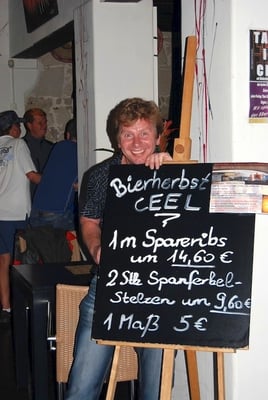 Bierherbst
CEEL
?
1m Spareribs
um 14,60 €
2 Stk Spanferkel-
Stelzen um 9,60€
1 Maß 5 €